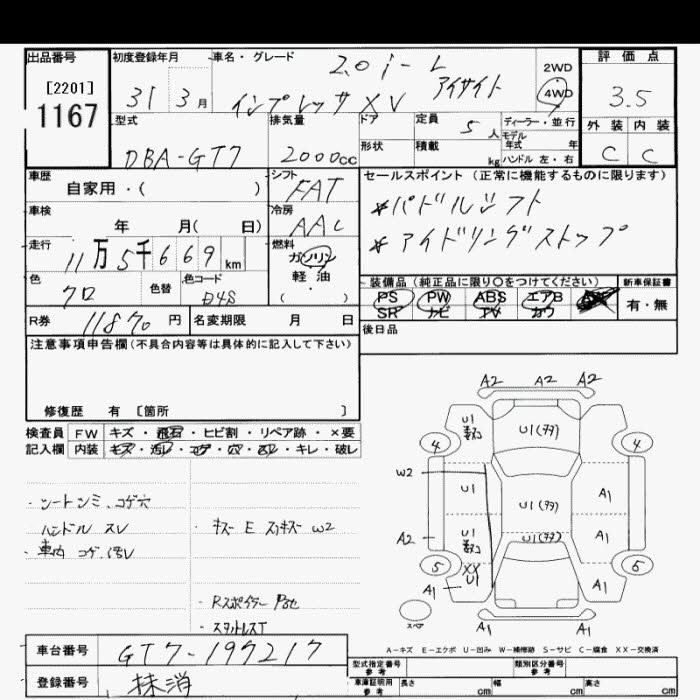 出品番号
[2201]
1167
初度登録年月
31 3月
車名・グレード
2.0 i-L
インプレッサXV アイサイト
2WD
4WD
評価点
3.5
外装 内装
C C
型式
DBA-GT7
排気量
2000cc
ドア
形状
定員
5人
積載
kg
ディーラー・並行
モデル
年式 年
ハンドル 左・右
車歴
自家用・( )
シフト
FAT
セールスポイント (正常に機能するものに限ります)
*パドルシフト
*アイドリングストップ
車検
年 月( 日)
冷房
AAC
走行
11万5千669km
燃料
ガソリン
軽・油
( )
色
クロ
色替
色コード
D4S
装備品(純正品に限り○をつけてください)
PS PW ABS エアB
SR ナビ TV カワ
新車保証書
有・無
R券
11870円
名変期限 月 日
後日品
注意事項申告欄(不具合内容等は具体的に記入して下さい)
修復歴 有 [箇所 ]
検査員
記入欄
FW キズ・飛石・ヒビ割・リペア跡・×要
内装 キズ・汚レ・コゲ・穴・スレ・キレ・破レ
・シートシミ、コゲ穴
ハンドル スレ
・車内 コゲ
・キズ E スリキズ W2
・Rスポイラー
・スタットレスT
A2 A2 A2
U1
U1(ｱﾀ)
4 4
W2
U1
U1(ｱﾀ)
A1
A2
U1
U1(ｱﾀ)
A1
5 XX 6
A1
U1
A1
スペア
A1 A1
A-キズ E-エクボ U-凹み W-補修跡 S-サビ C-腐食 XX-交換済
車台番号
GT7-197217
登録番号
抹消
型式指定番号
参考
類別区分番号
参考
車庫証明用
参考
長さ cm 幅 cm 高さ cm